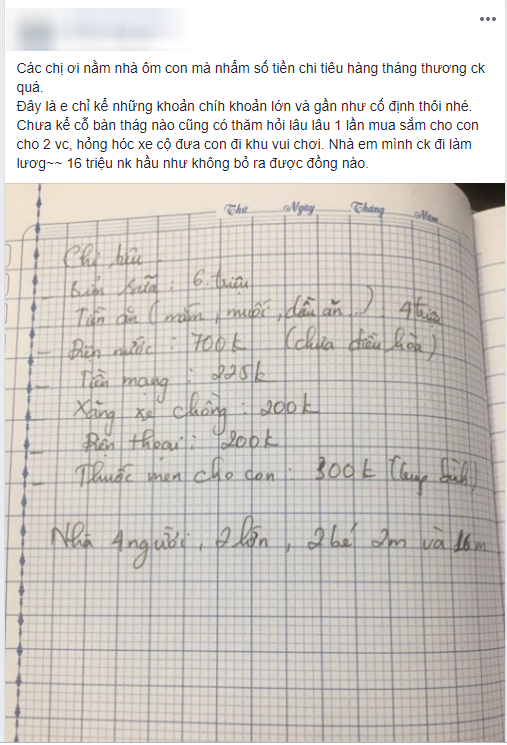 Các chị ơi nằm nhà ôm con mà nhẩm số tiền chi tiêu hàng tháng thương ck
quá.
Đây là e chỉ kể những khoản chính khoản lớn và gần như cố định thôi nhé.
Chưa kể cỗ bàn thág nào cũng có thăm hỏi lâu lâu 1 lần mua sắm cho con
cho 2 vc, hỏng hóc xe cộ đưa con đi khu vui chơi. Nhà em mình ck đi làm
lươg~~ 16 triệu nk hầu như không bỏ ra được đồng nào.
Thứ Ngày Tháng Năm
Chi tiêu.
- Bỉm sữa : 6. triệu
Tiền ăn ( mắm , muối , dầu ăn ...) : 4 triệu
- Điện nước : 700k (chưa điều hòa)
- Tiền mạng : 225k
- Xăng xe chồng : 200k
- Điện thoại : 200k
- Thuốc men cho con : 300k
Nhà 4 người , 2 lớn , 2 bé 2m và 16m